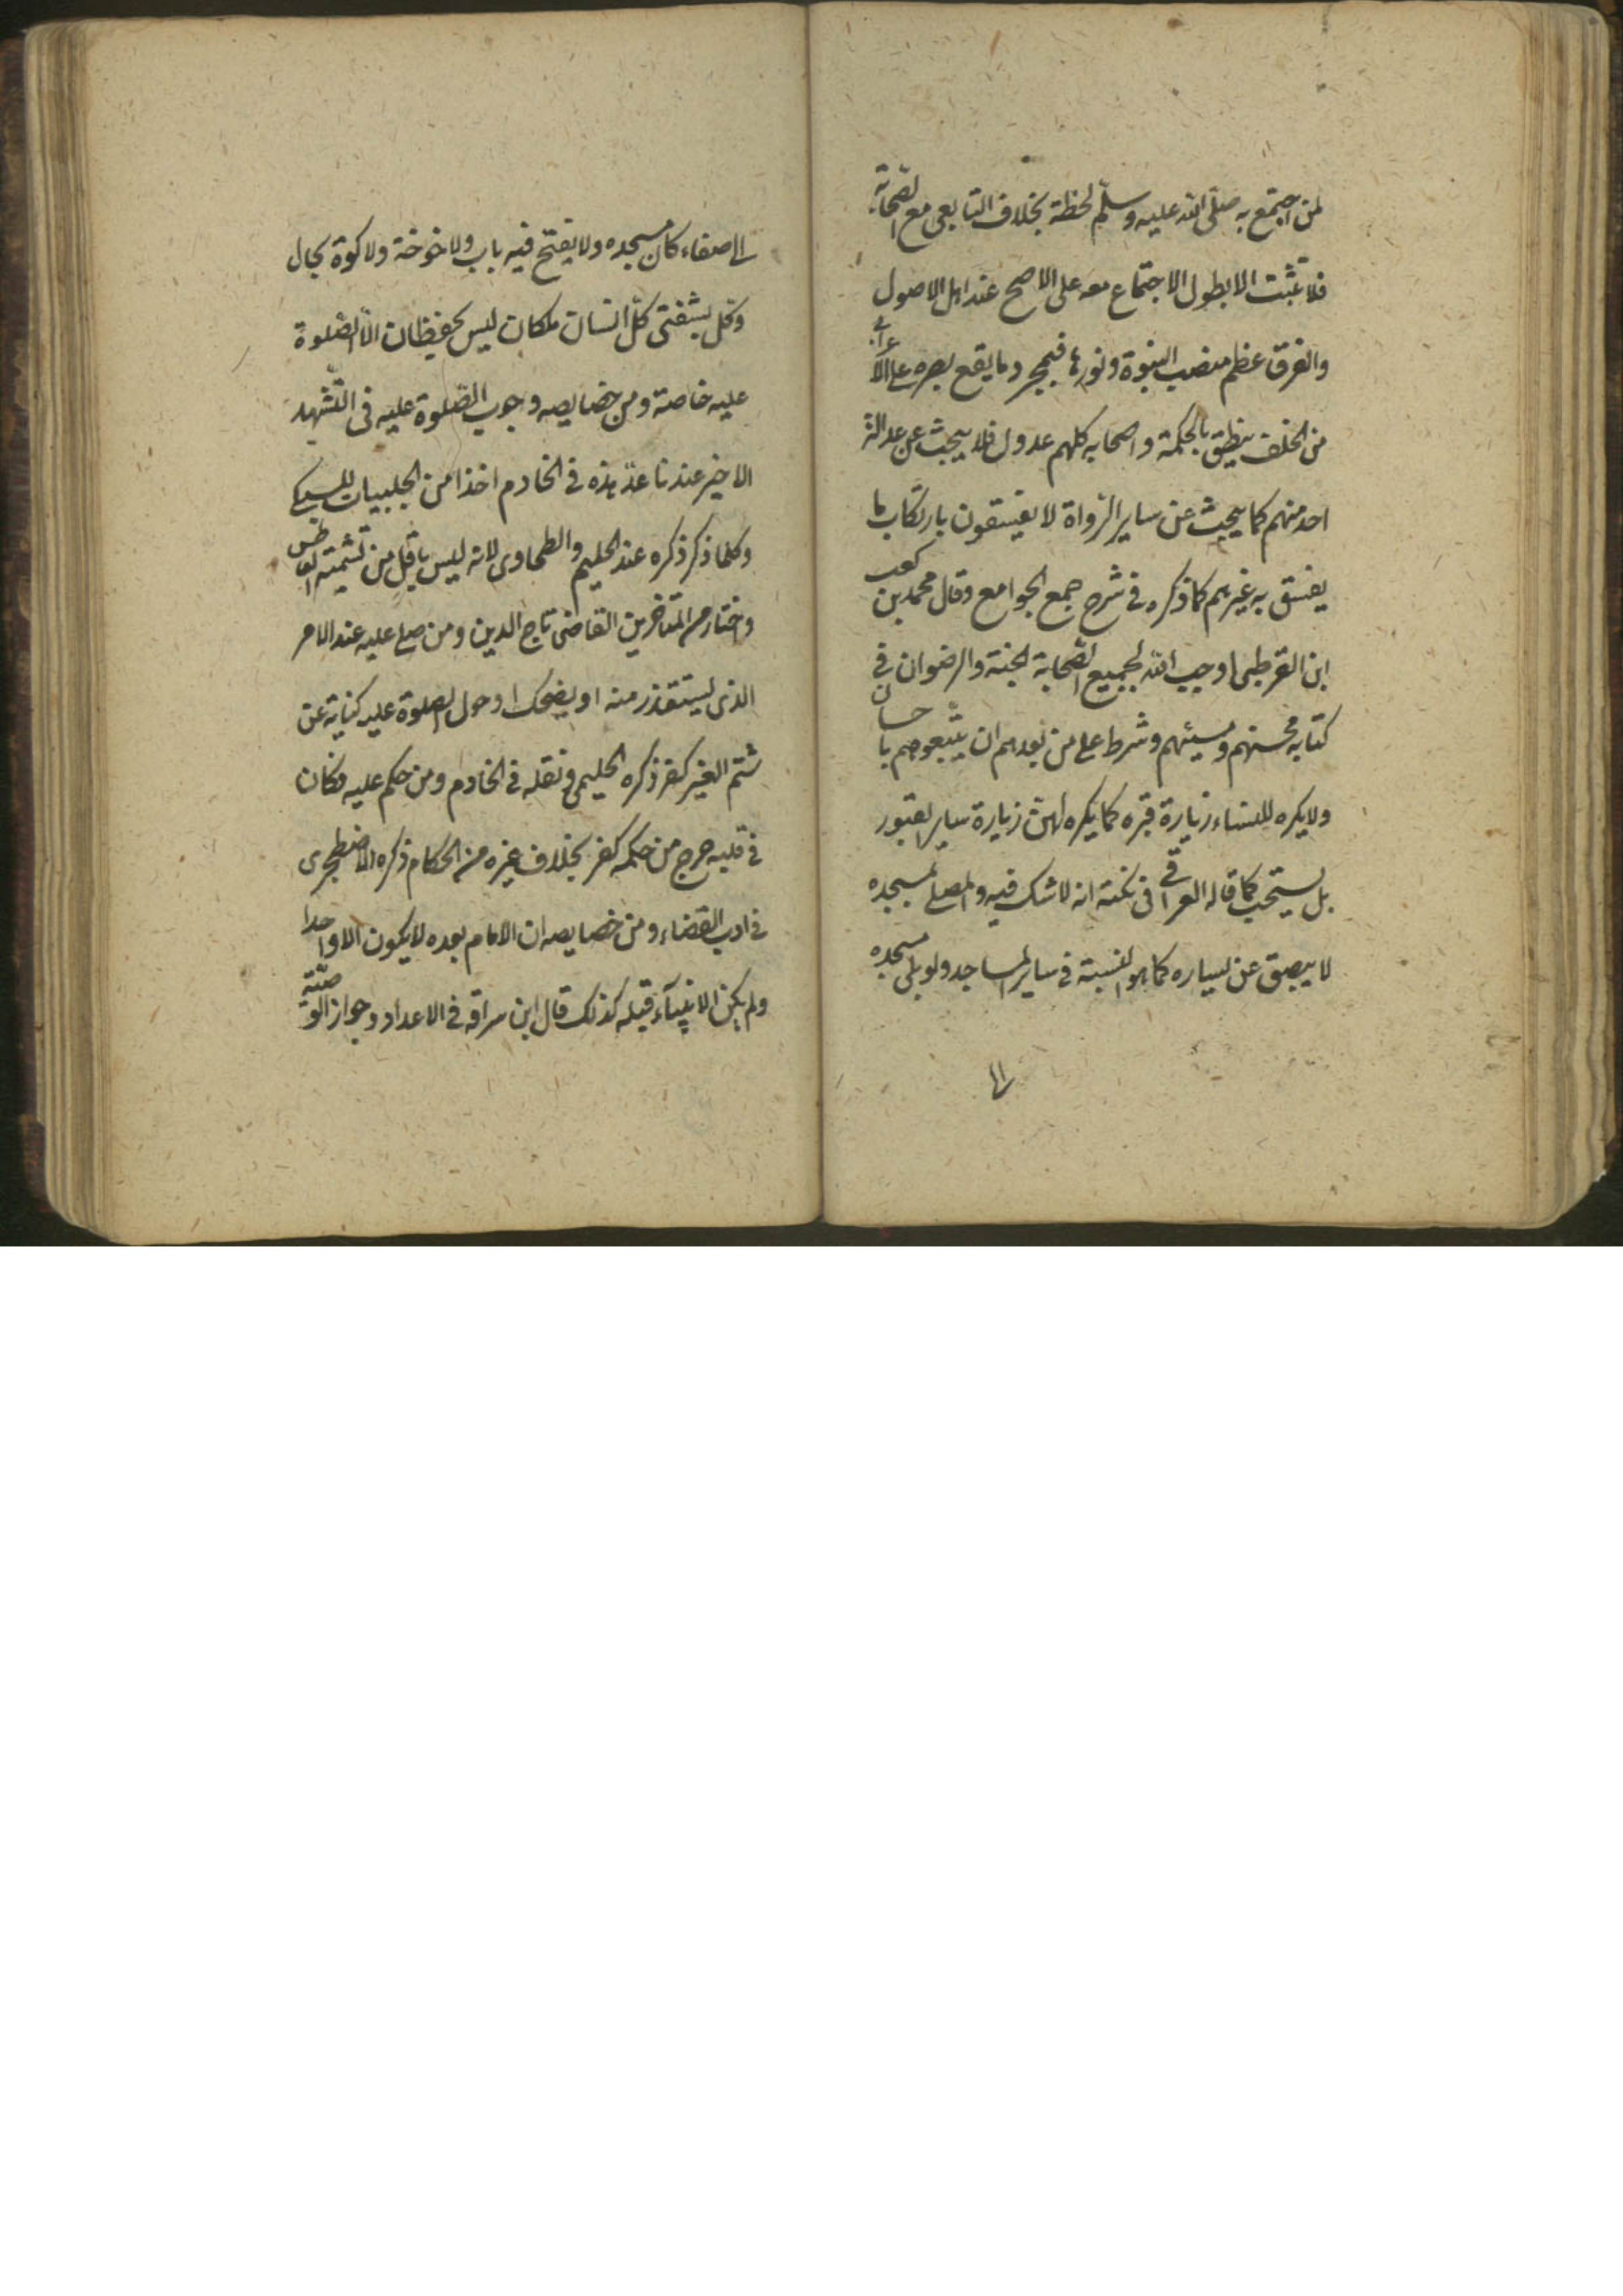 لمن اجتمع به صلّى الله عليه وسلّم لحظة بخلاف التابعى مع الصّحابة
فلا تثبت الا بطول الاجتماع معه على الاصح عند اهل الاصول
والفرق عظم منصب النبوة ونورها فبمجرد ما يقع بصره على الاعرابى
من الخلف ينطق بالحكمة واصحابه كلهم عدول فلا يبحث عن عدالة
احد منهم كما يبحث عن ساير الرّواة لا يفسقون بارتكاب ما
يفسق به غيرهم كما ذكره فى شرح جمع الجوامع وقال محمد بن كعب
ابن القرطبى اوجب الله لجميع الصّحابة الجنة والرضوان فى
كتابه محسنهم ومسيئهم وشرط على من بعدهم ان يتبعوهم باحسان
ولا يكره للنساء زيارة قبره كما يكره لهنّ زيارة ساير القبور
بل يستحب كما قاله العراقى فى نكته انه لا شك فيه والمصلى بمسجده
لا يبصق عن يساره كما هو السنة فى ساير المساجد ولو بنى مسجده
الى
الى صنعاء كان مسجده ولا يفتح فيه باب ولا خوخة ولا كوة بحال
وكل بشفتى كلّ انسان ملكان ليس يحفظان الّا الصّلوة
عليه خاصة ومن خصايصه وجوب الصّلوة عليه فى التشهد
الاخير عندنا عدّ هذه فى الخادم اخذا من الحلبيات للسبكى
وكلما ذكر ذكره عند الحليم والطحاوى لانه ليس باقل من تشميت العاطس
واختاره من المتاخرين القاضى تاج الدين ومن صلى عليه عند الامر
الذى يستقذر منه او يضحك او حول الصلوة عليه كناية عن
شتم الغير كفر ذكره الحليمى ونقله فى الخادم ومن حكم عليه فكان
فى قلبه حرج من حكمه كفر بخلاف غيره من الحكام ذكره الاصطخرى
فى ادب القضاء ومن خصايصه ان الامام بعده لا يكون الا واحدا
ولم يكن الانبياء قبله كذلك قال ابن سراقه فى الاعداد وجواز الوصيّة